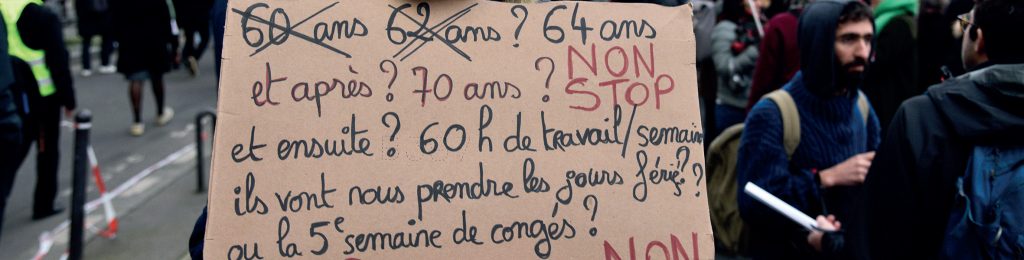 60 ans 62 ans ? 64 ans
et après ? 70 ans ? NON STOP
et ensuite ? 60 h de travail/semaine
ils vont nous prendre les jours fériés ? ?
ou la 5e semaine de congés ?
NON